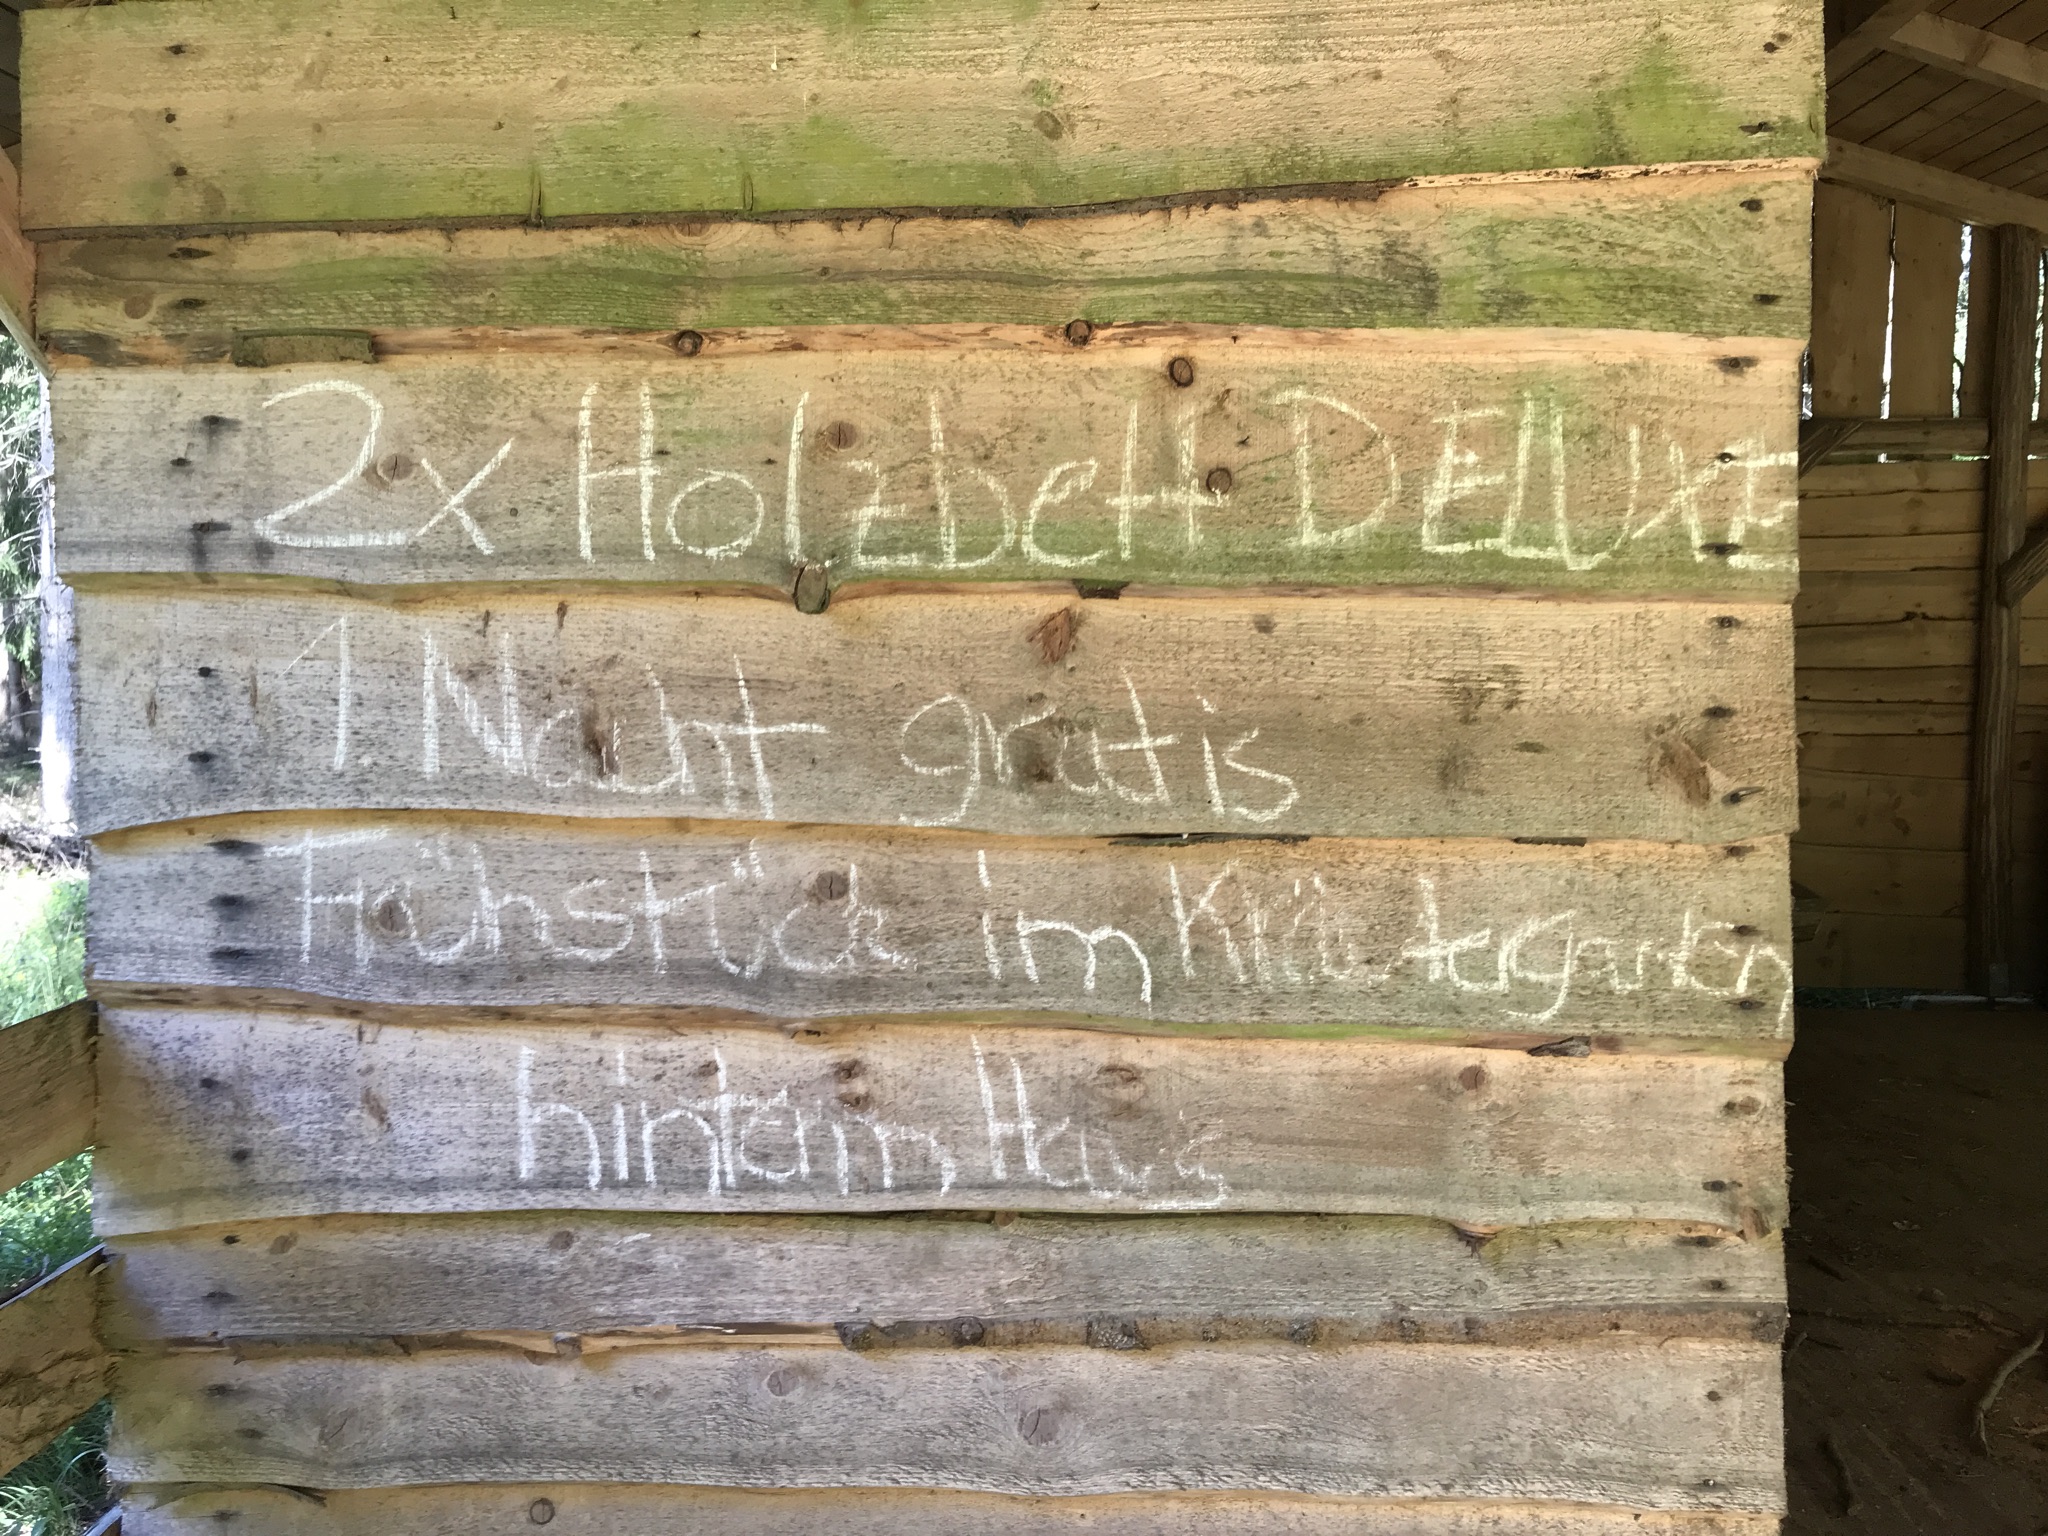 2x Holzbett DELUXE
1 Nacht gratis
Frühstück im Kräutergarten
hinterm Haus